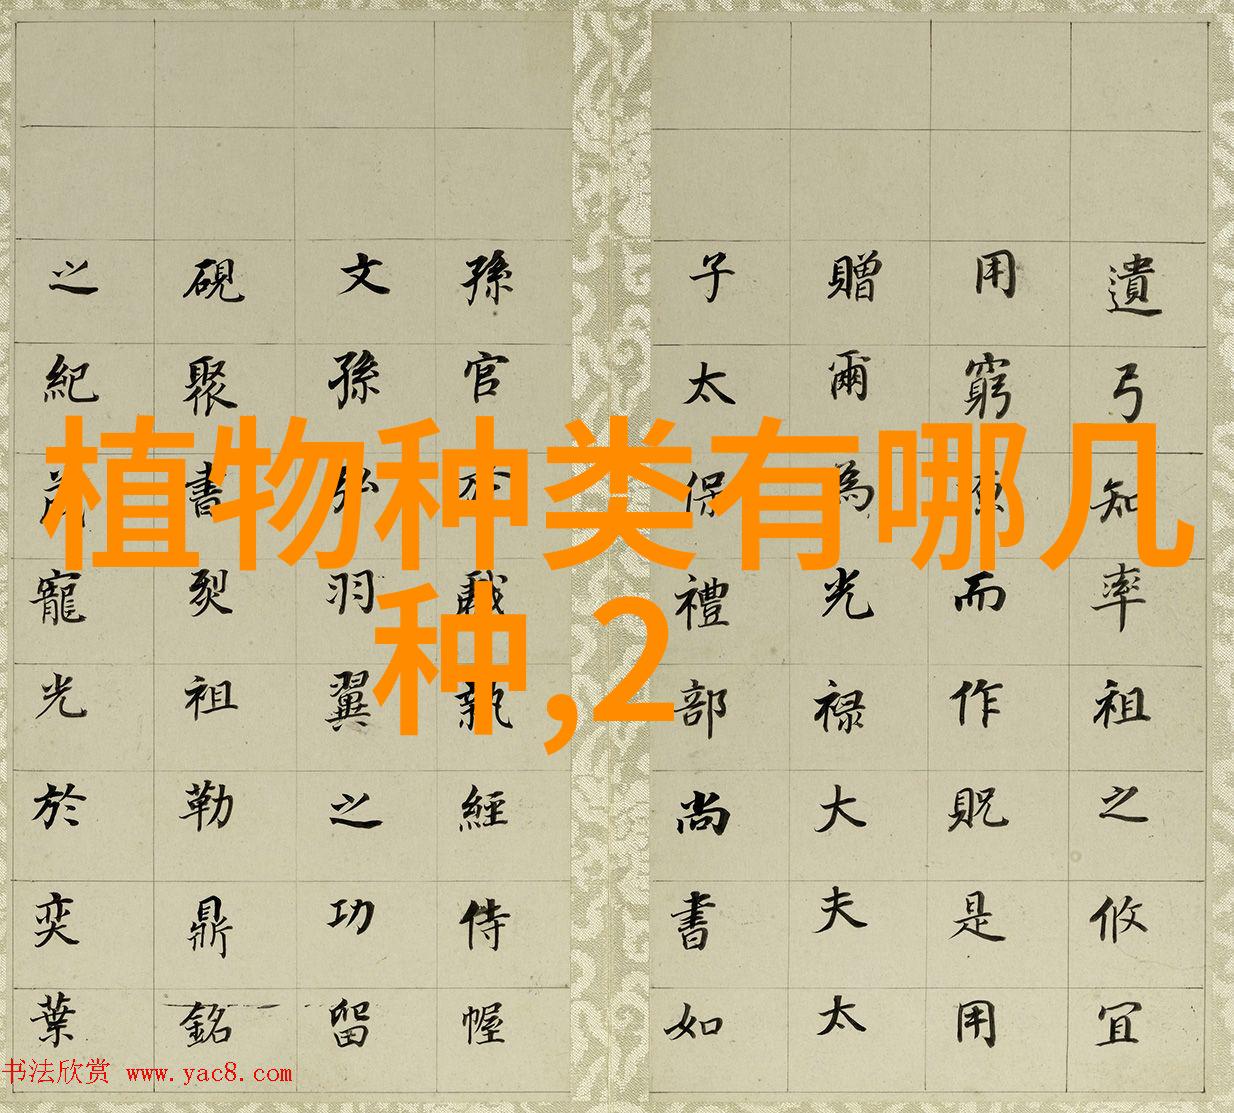 植物种类有哪几
种,2
遺弓知率祖之攸宜
用窮而作貺是用
贈爾為光祿大夫太
子太保禮部尚書如
孫官執經侍幄
文孫弘羽翼之功留
硯聚書裂祖勒鼎銘
之紀寵光於奕葉
书法欣赏 www.yac8.com